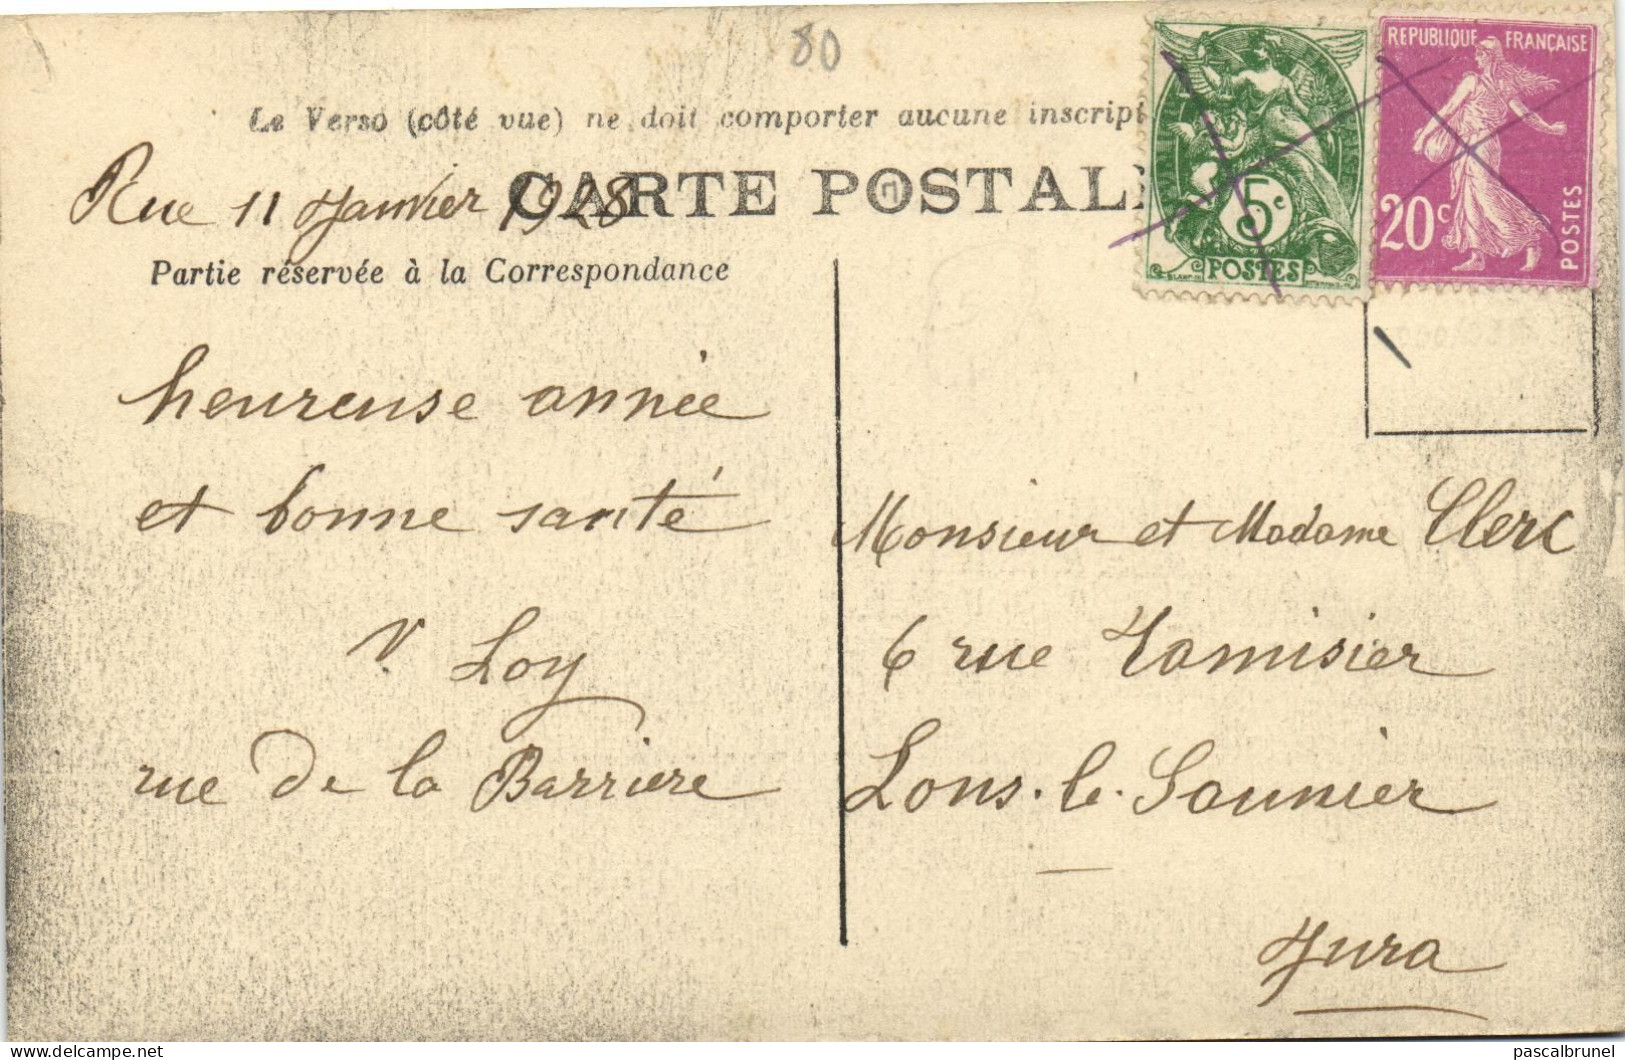 80
Le Verso (côté vue) ne doit comporter aucune inscript
Rue 11 Janvier 1928
CARTE POSTAL
Partie réservée à la Correspondance
heureuse année
et bonne santé
V. Loy
rue de la Barriere
5c
POSTES
REPUBLIQUE FRANÇAISE
20c
POSTES
Monsieur et Madame Clerc
6 rue Tamisier
Lons-le-Saunier
Jura
www.delcampe.net
pascalbrunel